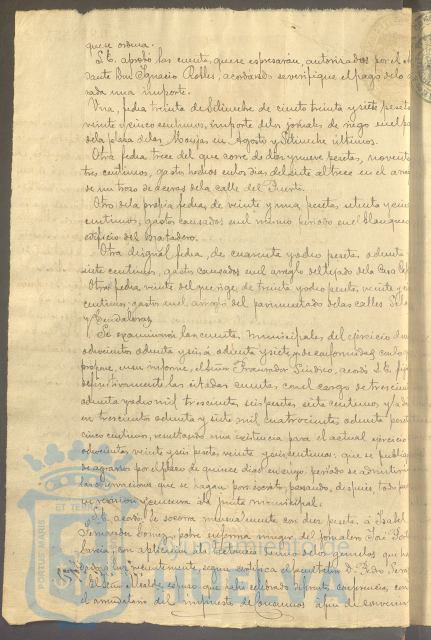 que se ordena.
S.E. aprobó las cuentas, que se expresarán, autorizadas por el
dante Don Ignacio Robles, acordando se verifique el pago de la
rada una importe.
Una, fecha treinta de Setiembre de ciento treinta y siete pesetas
veinte y cinco centimos, importe de los jornales de riego en el
de la plaza de las Monjas, en Agosto y Setiembre últimos.
Otra fecha trece del que corre de diez y nueve pesetas, noventa
tres centimos, gastos hechos en los dias del siete al trece en el
de un trozo de acera de la calle del Puerto.
Otra de la propia fecha, de veinte y una pesetas, setenta y cinco
centimos, gastos causados en el mismo periodo en el blanqueo
edificio del Matadero.
Otra de igual fecha, de cuarenta y ocho pesetas ochenta
siete centimos, gastos causados en el arreglo del tejado de la Casa
Otra fecha veinte del que rige, de treinta y ocho pesetas, veinte y
centimos, gastos en el arreglo del pavimento de las calles
y
Se examinaron las cuentas municipales del ejercicio de
ochocientos ochenta y seis á ochenta y siete, y de conformidad con lo
propone, en su informe, el Señor Procurador Sindico, acordó S.E. fijar
definitivamente las citadas cuentas, con el cargo de trescientos
ochenta y ocho mil trescientas, seis pesetas siete centimos y la data
en trescientos ochenta y siete mil cuatrocientas, ochenta pesetas
cinco centimos, resultando una existencia para el actual ejercicio
ochocientas veinte y seis pesetas, veinte y seis centimos: que se publique
por el plazo de quince dias en cuyo periodo se admitirán
las observaciones que se hagan por escrito, pasando, despues, todo para
su revision y censura á la junta municipal.
S.E. acordó se socorra mensualmente con diez pesetas á Isabel
pobre enferma, muger del jornalero José
Garcia, con aplicacion á la lactancia de uno de los gemelos que ha
dado á luz recientemente, segun certifica el facultativo D. Pedro
El Señor Alcalde expuso que habia celebrado varias conferencias, con
el arrendatario del impuesto de consumos á fin de convenir
ET TERRÆ
PORTUS MARIS
Ayuntamiento de
HUELVA